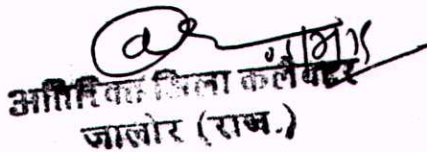 अतिरिक्त जिला कलेक्टर
जालोर (राज.)